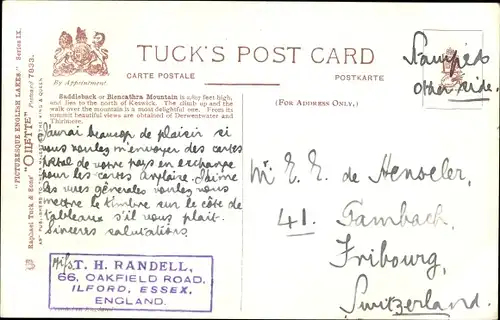 TUCK'S POST CARD
CARTE POSTALE
POSTKARTE
By Appointment
Saddleback or Blencathra Mountain is 2,847 feet high,
and lies to the north of Keswick. The climb up and the
walk over the mountain is a most delightful one. From its
summit beautiful views are obtained of Derwentwater and
Thirlmere.
(FOR ADDRESS ONLY.)
Stamped
other side.
J'aurai beaucoup de plaisir si
vous voulez m'envoyer des cartes
postal de votre pays en exchange
pour les cartes Anglaise. J'aime
les vues générales voulez vous
mettre le timbre sur le côté de
tableaux s'il vous plait.
Sincères salutations.
Mr E. E. de Henseler,
41. Gambach,
Fribourg,
Switzerland.
Miss T. H. RANDELL,
66, OAKFIELD ROAD,
ILFORD, ESSEX,
ENGLAND.
"PICTURESQUE ENGLISH LAKES." Series IX.
Raphael Tuck & Sons' "OILETTE" Postcard 7833.